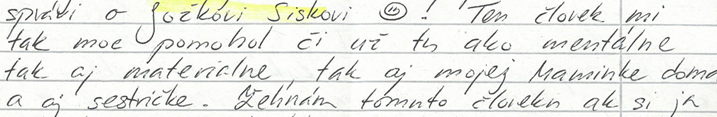 správi o Jožkovi Siskovi ☺! Ten človek mi
tak moc pomohol či už tu ako mentálne
tak aj materialne, tak aj mojej Maminke doma
a aj sestričke. Žehnám tomuto človeku ak si ja